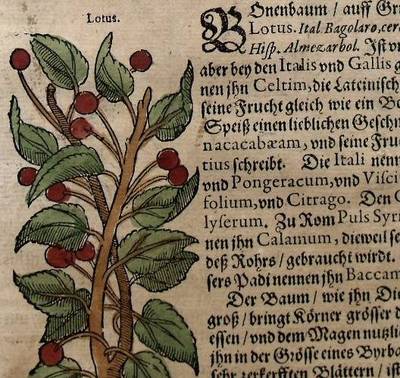 Lotus.
BOnenbaum / auff Gri
Lotus. Ital. Bagolaro, cer
Hisp. Almezarbol. Ist v
aber bey den Italis vnd Gallis g
nen jhn Celtim, die Lateinisch
seine Frucht gleich wie ein Bo
Speiß einen lieblichen Geschm
nacacabæam, vnd seine Fru
tius schreibt. Die Itali nenn
vnd Pongeracum, vnd Visci
folium, vnd Citrago. Den G
lyserum. Zu Rom Puls Syr
nen jhn Calamum, dieweil se
deß Rohrs / gebraucht wirdt.
sers Padi nennen jhn Baccam
Der Baum / wie jhn Die
groß / bringt Körner grösser d
essen / vnd dem Magen nutzli
jhn in der Grösse eines Byrba
sehr zerkerfften Blättern / ist